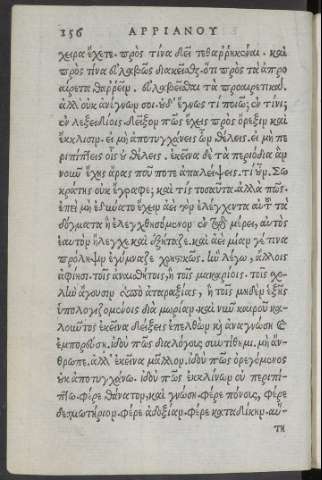 156 ΑΡΡΙΑΝΟΥ
χειρα ἔχετε. πρὸς τίνα δεῖ τεθαρρηκέναι. καὶ
πρὸς τίνα εὐλαβῶς διακεῖσθαι. ὅτι πρὸς τὰ ἀπρο
αίρετα θαρρεῖν. εὐλαβεῖσθαι τὰ προαιρετικά.
ἀλλ' οὐκ ἀνέγνων σοι. οὐδ' ἔγνως τί ποιῶ; ἐν τίνι;
ἐν λεξειδίοις. δεῖξον πῶς ἔχεις πρὸς ὄρεξιν καὶ
ἔκκλισιν. εἰ μὴ ἀποτυγχάνεις ὧν θέλεις. εἰ μὴ πε
ριπίπτεις οἷς οὐ θέλεις. ἐκεῖνα δὲ τὰ περιόδια ἂν
νοῦν ἔχῃς ἄρας πού ποτε ἀπαλείψεις. τί οὖν. Σω
κράτης οὐκ ἔγραφε; καὶ τίς τοσαῦτα. ἀλλὰ πῶς.
ἐπεὶ μὴ ἐδύνατο ἔχειν ἀεὶ τὸν ἐλέγχοντα αὐτοῦ τὰ
δόγματα ἢ ἐλεγχθησόμενον ἐν τῷ μέρει, αὐτὸς
ἑαυτὸν ἤλεγχε καὶ ἐξήταζε. καὶ ἀεὶ μίαν γέ τινα
πρόληψιν ἐγύμναζε χρηστικῶς. ὧν λέγω, ἄλλοις
ἀφίησι. τοῖς ἀναισθήτοις, ἢ τοῖς μακαρίοις. τοῖς σχο-
λὴν ἄγουσιν ὑπὸ ἀταραξίας, ἢ τοῖς μηδὲν ἑξῆς
ὑπολογιζομένοις διὰ μωρίαν. καὶ νῦν καιροῦ κα-
λοῦντος ἐκεῖνα δείξεις ἀπελθὼν κἢ ἀναγνώσῃ καὶ
ἐμπορεύσῃ. ἰδοὺ πῶς διαλόγους συντίθημι. μὴ ἄν-
θρωπε. ἀλλ' ἐκεῖνα μᾶλλον. ἰδοὺ πῶς ὀρεγόμενος
οὐκ ἀποτυγχάνω. ἰδοὺ πῶς ἐκκλίνων οὐ περιπί-
πτω. φέρε θάνατον, καὶ γνώσῃ. φέρε πόνους, φέρε
δεσμωτήριον. φέρε ἀδοξίαν. φέρε καταδίκην. αὕ-
τη